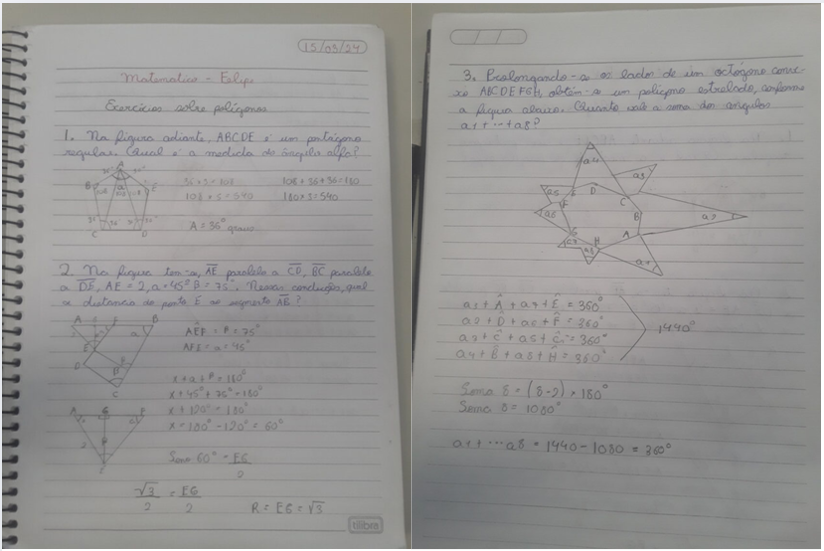 15/03/24
Matemática - Felipe
Exercícios sobre polígonos
1. Na figura adiante, ABCDE é um pentágono
regular. Qual é a medida do ângulo alfa?
A
B
E
C
D
36 × 3 = 108
108 × 5 = 540
108 + 36 + 36 = 180
180 × 3 = 540
A = 36° graus
2. Na figura tem-a, AE paralelo a CD, BC paralelo
a DE, AE = 2, a = 45° B = 75°. Nessas condições, qual
a distancia do ponto E ao segmento AB?
AEF = B = 75°
AFE = a = 45°
x + a + B = 180°
x + 45° + 75° = 180°
x + 120° = 180°
x = 180° - 120° = 60°
Seno 60° = EG
2
√3 = EG
2 2
R = EG = √3
tilibra
3. Prolongando-se os lados de um octógono conve-
xo ABCDEFGH, obtém-se um polígono estrelado, conforme
a figura abaixo. Quanto vale a soma dos ângulos
a1 + ... + a8?
a4
D
C
B
A
H
a1 + Â + a7 + Ê = 360°
a2 + D̂ + a6 + F̂ = 360°
a3 + Ĉ + a5 + Ĝ = 360°
a4 + B̂ + a8 + Ĥ = 360°
1440°
Soma 8 = (8-2) × 180°
Soma 8 = 1080°
a1 + ... a8 = 1440 - 1080 = 360°